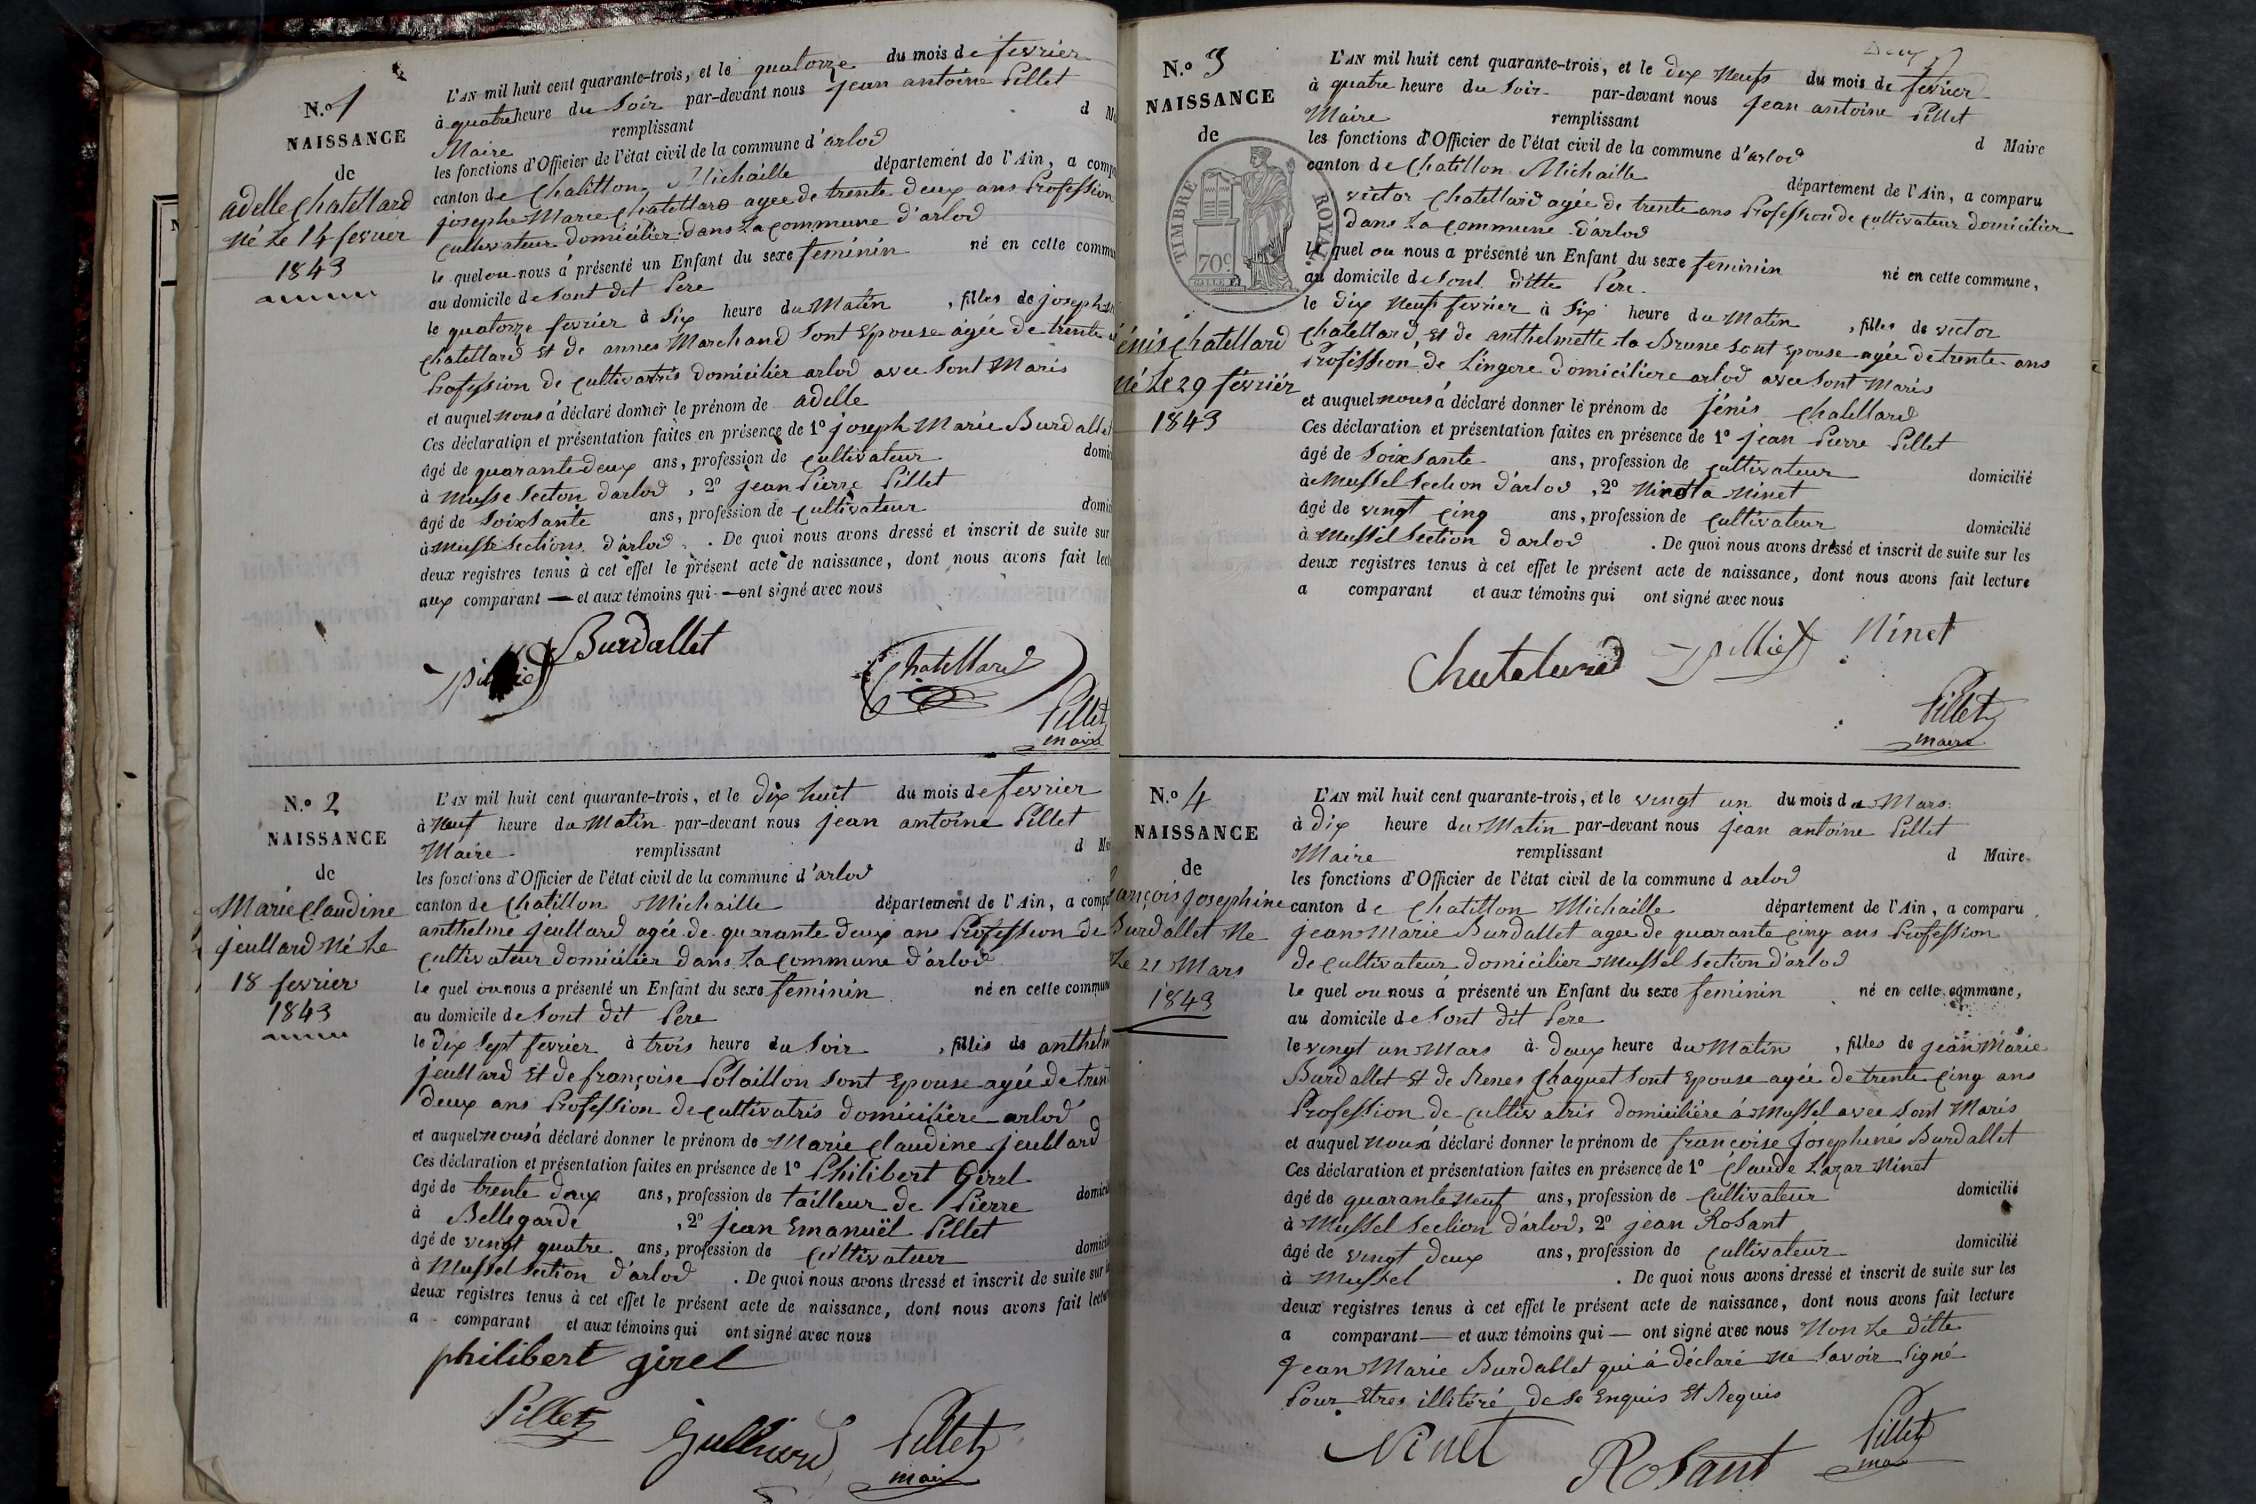 N.o 1
NAISSANCE
de
adelle Chatellard
né Le 14 fevrier
1843
L'AN mil huit cent quarante-trois, et le quatorze du mois de fevrier
à quatre heure du Soir par-devant nous jean antoine Pillet
Maire remplissant d
les fonctions d'Officier de l'état civil de la commune d'arlod
canton de Chatillon Michaille département de l'Ain, a
josephe Marie Chatellard agee de trente deux ans Profession
cultivateur domicilier dans La commune d'arlod
le quel ou nous á présenté un Enfant du sexe feminin né en cette
au domicile de Sont dit Pere
le quatorze fevrier à Six heure du Matin , filles de
Chatellard Et de annes Marchand Sont Epouse ágée de trente
Profession de cultivatris domicilièr arlod avec Sont Maris
et auquel nous á déclaré donner le prénom de adelle
Ces déclaration et présentation faites en présence de 1º joseph Marie Burdallet
âgé de quarante deux ans, profession de cultivateur
à Musse Secton d'arlod , 2º jean Pierre Pillet
âgé de Soixsante ans, profession de cultivateur
à Musse Sections d'arlod . De quoi nous avons dressé et inscrit de suite sur
deux registres tenus à cet effet le présent acte de naissance, dont nous avons fait
aux comparant — et aux témoins qui — ont signé avec nous
Burdallet
Chatellard
Pillet
maire
N.o 2
NAISSANCE
de
Marie Claudine
jeullard Né Le
18 fevrier
1843
L'AN mil huit cent quarante-trois, et le dix huit du mois de fevrier
à Neuf heure du Matin par-devant nous jean antoine Pillet
Maire remplissant d
les fonctions d'Officier de l'état civil de la commune d'arlod
canton de Chatillon Michaille département de l'Ain, a
anthelme jeullard agée de quarante deux ans Profession de
cultivateur domicilier dans La commune d'arlod
le quel ou nous a présenté un Enfant du sexe feminin né en cette commune
au domicile de Sont dit Pere
le dix Sept fevrier à trois heure du Soir , filles de
jeullard Et de françoise Polaillon Sont Epouse agée de
deux ans Profession de cultivatris domicilière arlod
et auquel nous á déclaré donner le prénom de Marie Claudine jeullard
Ces déclaration et présentation faites en présence de 1º Philibert Girel
âgé de trente deux ans, profession de tailleur de Pierre
à Bellegarde , 2º jean Emanuël Pillet
âgé de vingt quatre ans, profession de cultivateur
à Mussel Section d'arlod . De quoi nous avons dressé et inscrit de suite sur
deux registres tenus à cet effet le présent acte de naissance, dont nous avons fait
a comparant et aux témoins qui ont signé avec nous
philibert girel
Pillet
Pillet
N.o 3
NAISSANCE
de
TIMBRE ROYAL
70c
Chatellard
né Le 29 février
1843
L'AN mil huit cent quarante-trois, et le dix Neufs du mois de fevrier
à quatre heure du Soir par-devant nous jean antoine Pillet
Maire remplissant d Maire
les fonctions d'Officier de l'état civil de la commune d'arlod
canton de Chatillon Michaille département de l'Ain, a comparu
victor Chatellard agée de trente ans Profession de cultivateur domicilier
dans La commune d'arlod
le quel ou nous a présenté un Enfant du sexe feminin né en cette commune,
au domicile de Sont ditte Pere
le dix Neufs fevrier à Six heure du Matin , filles de victor
Chatellard, Et de anthelmette La Brune Sont Epouse agée de trente ans
Profession de Lingere domiciliere arlod avec Sont Maris
et auquel nous á déclaré donner le prénom de jénis Chatellard
Ces déclaration et présentation faites en présence de 1º jean Pierre Pillet
âgé de Soixsante ans, profession de cultivateur domicilié
à Mussel Section d'arlod , 2º Ninet
âgé de vingt cinq ans, profession de cultivateur domicilié
à Mussel Section d'arlod . De quoi nous avons dressé et inscrit de suite sur les
deux registres tenus à cet effet le présent acte de naissance, dont nous avons fait lecture
a comparant et aux témoins qui ont signé avec nous
Chatelard Ninet
Pillet
maire
N.o 4
NAISSANCE
de
josephine
Burdallet Ne
Le 21 Mars
1843
L'AN mil huit cent quarante-trois, et le vingt un du mois de Mars
à dix heure du Matin par-devant nous jean antoine Pillet
Maire remplissant d Maire
les fonctions d'Officier de l'état civil de la commune d arlod
canton de Chatillon Michaille département de l'Ain, a comparu
jean Marie Burdallet agee de quarante cinq ans Profession
de cultivateur domicilier Mussel Section d'arlod
le quel ou nous á présenté un Enfant du sexe feminin né en cette commune,
au domicile de Sont dit Pere
le vingt un Mars à deux heure du Matin , filles de jean Marie
Burdallet Et de Renes Chaquet Sont Epouse agée de trente cinq ans
Profession de cultivatris domicilière á Mussel avec Sont Maris
et auquel nous á déclaré donner le prénom de françoise josephinés Burdallet
Ces déclaration et présentation faites en présence de 1º Claude Lazar Ninet
âgé de quarante neuf ans, profession de cultivateur domicilié
à Mussel Section d'arlod, 2º jean Rosant
âgé de vingt deux ans, profession de cultivateur domicilié
à Mussel . De quoi nous avons dressé et inscrit de suite sur les
deux registres tenus à cet effet le présent acte de naissance, dont nous avons fait lecture
a comparant — et aux témoins qui — ont signé avec nous Non Le ditte
jean Marie Burdallet qui á déclaré ne Savoir Signé
Pour Etres illitéré de Se Enquis Et Requis
Ninet
Rosant
Pillet